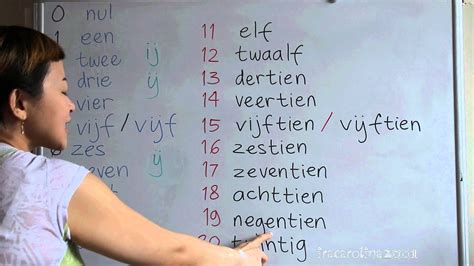 0 nul
1 een
2 twee ij
drie ÿ
vier
vijf / vÿf
zes
ÿ
11 elf
12 twaalf
13 dertien
14 veertien
15 vijftien / vÿftien
16 zestien
17 zeventien
18 achttien
19 negentien
20